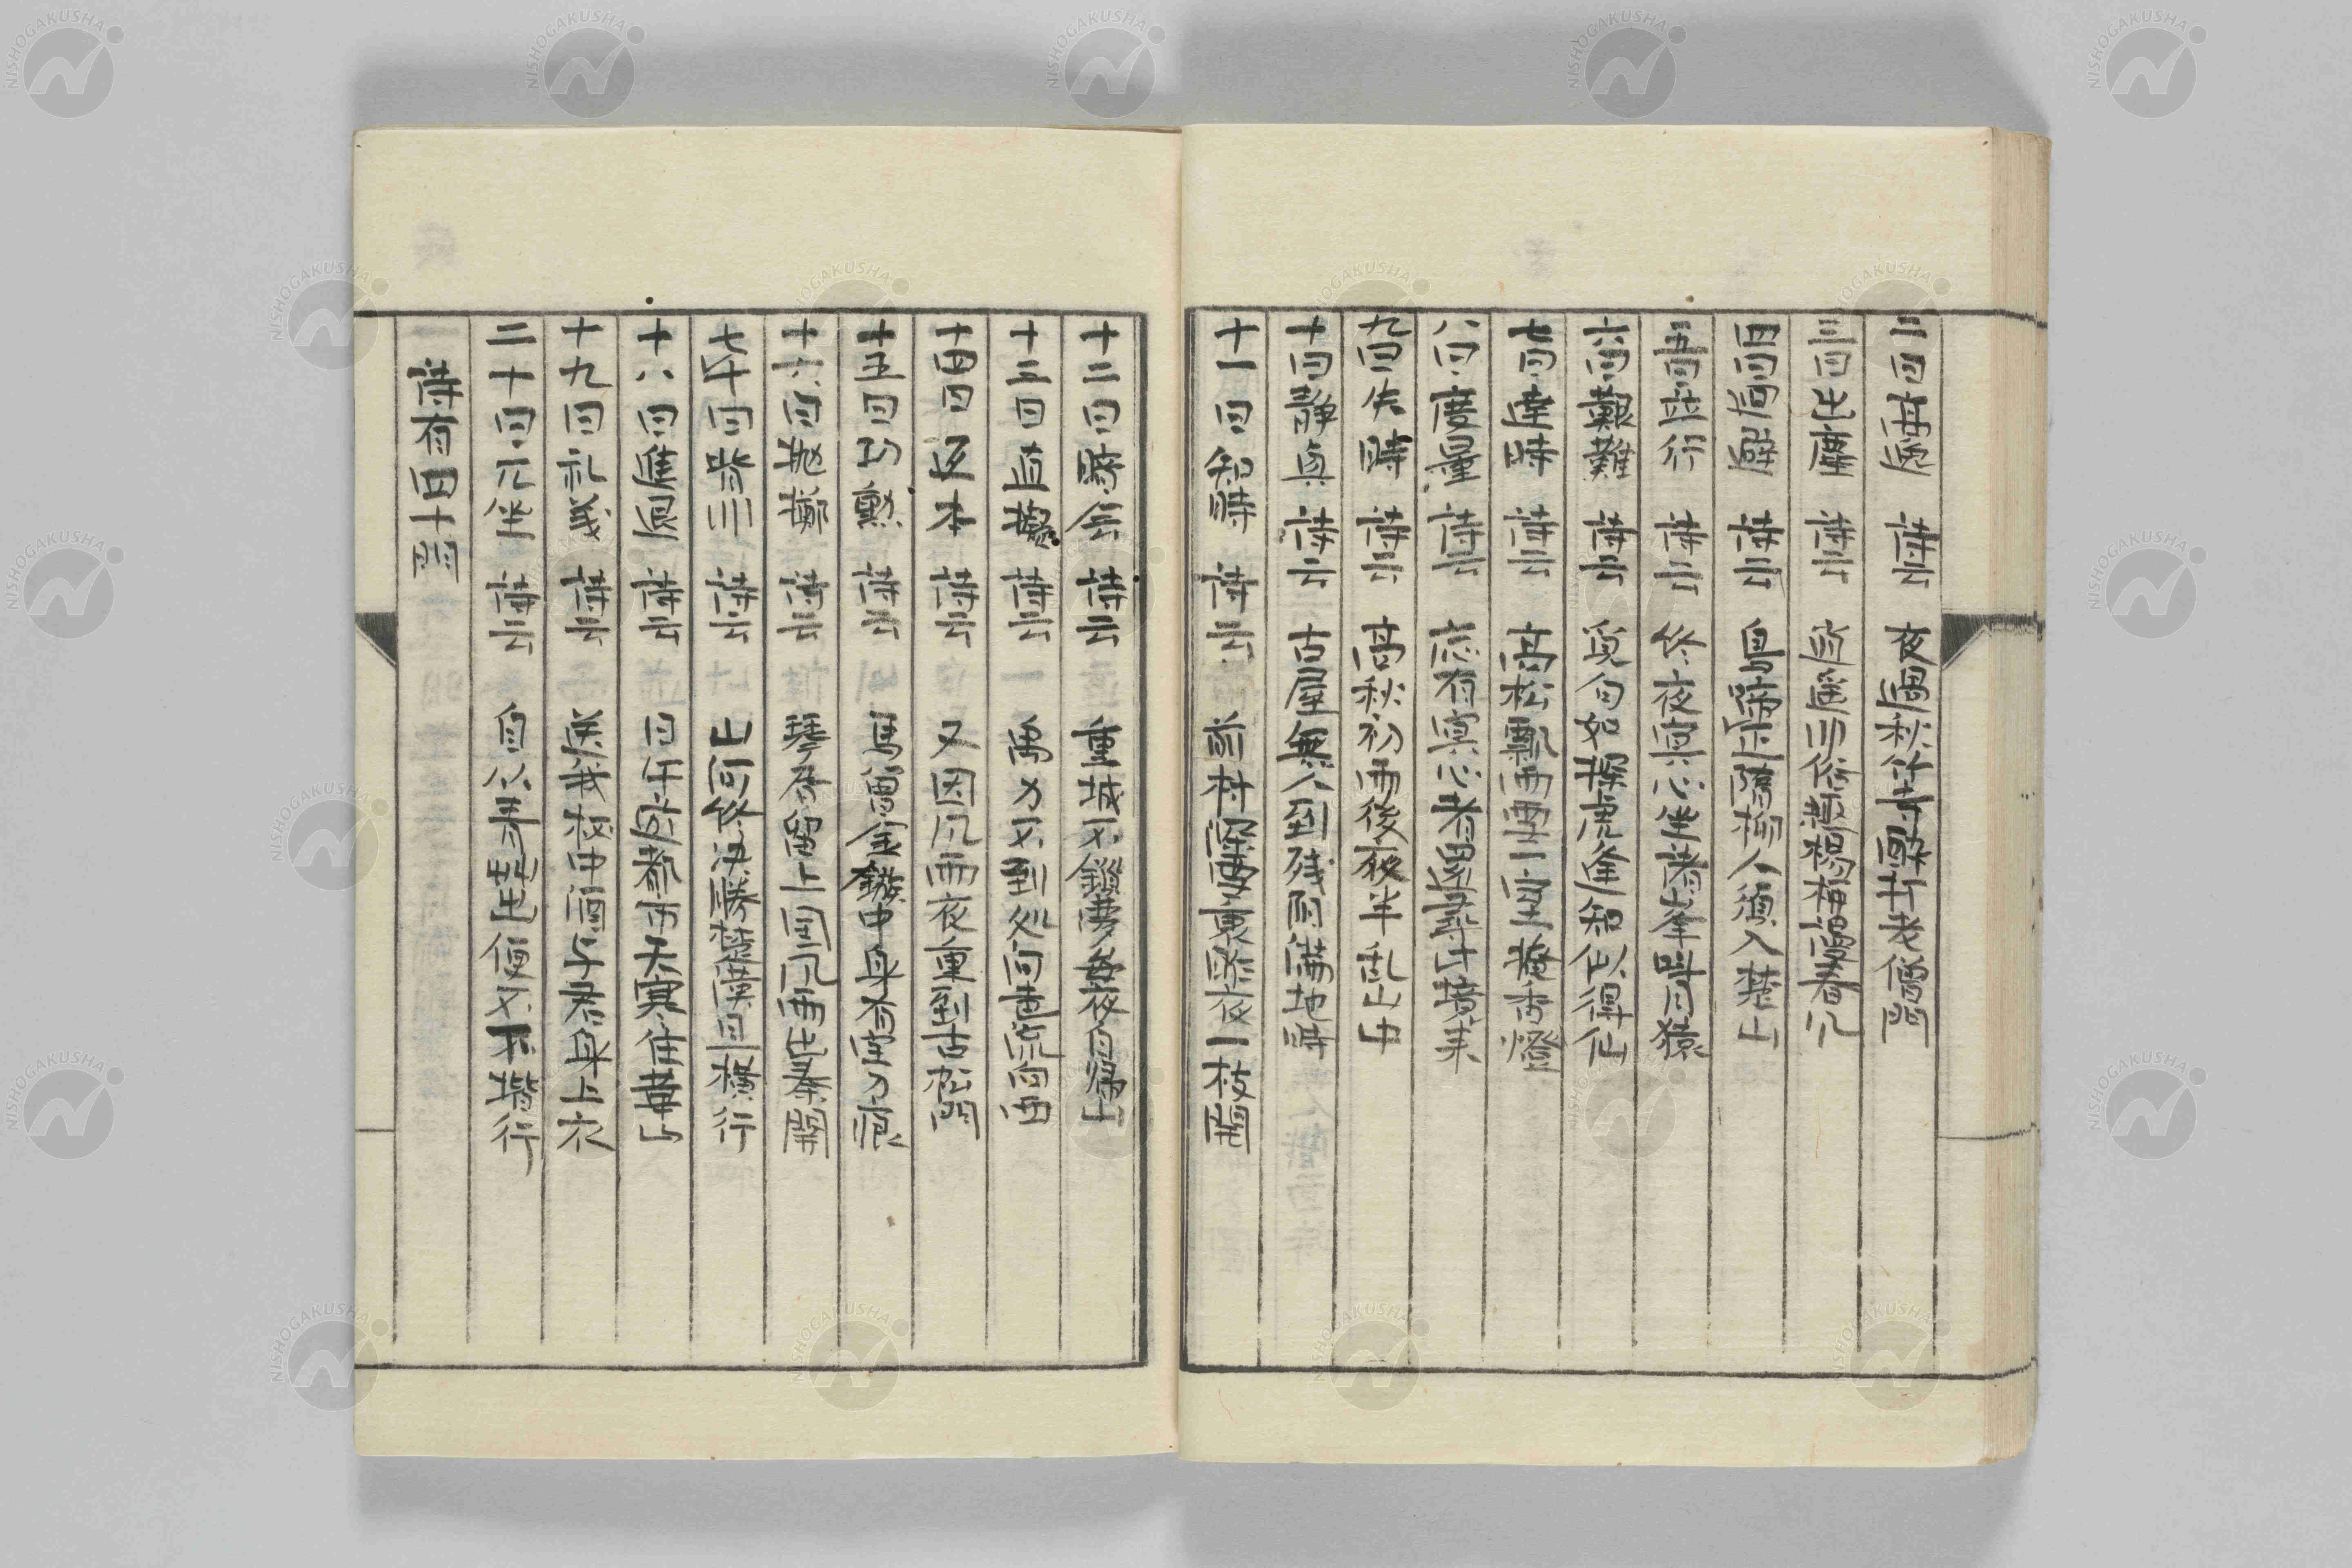 二曰再遇 詩云 夜過秋竹寺醉打老僧門
三曰出塵 詩云 逍遥川俗趣楊梅濕春風
四曰廻避 詩云 鳥啼深隠柳人須入楚山
五曰並行 詩云 終夜冥心坐諸峯叫月猿
六曰艱難 詩云 覓句如探虎逢知似得仙
七曰達時 詩云 高松飄雨雪一室掩香燈
八曰度量 詩云 应有冥心者還尋此境来
九曰失時 詩云 高秋初雨後夜半乱山中
十曰静真 詩云 古屋無人到残陽満地時
十一曰知時 詩云 前村深雪裏昨夜一枝開
十二曰 詩云 重城不鎖夢每夜自帰山
十三曰直擬 詩云 禹力不到処河聲流向西
十四曰返本 詩云 又因風雨夜重到古松門
十五曰功勲 詩云 馬曽金鏃中身有宝刀痕
十六曰抛擲 詩云 琴書留上国風雨出秦関
十七曰背川 詩云 山河終決勝楚漢且横行
十八曰進退 詩云 日午都市天寒住華山
十九曰礼義 詩云 送我杯中酒与君身上衣
二十曰兀坐 詩云 自从青草出便不下堦行
詩有四十門
NISHOGAKUSHA